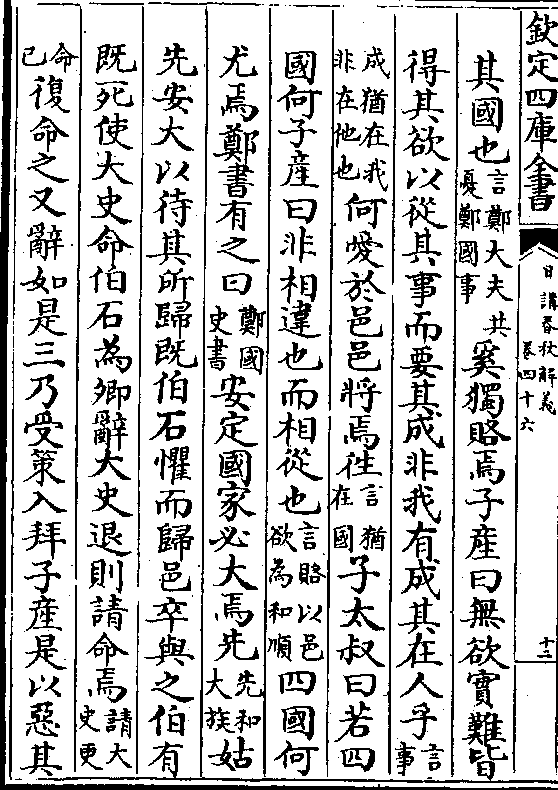 欽定四庫全書
日講春秋解義
卷四十六
十二
其國也言鄭大夫共憂鄭國事奚獨賂焉子産曰無欲實難皆
得其欲以從其事而要其成非我有成其在人乎言事
成猶在我非在他也何愛於邑邑將焉徃言猶在國子太叔曰若四
國何子産曰非相違也而相從也言賂以邑欲為和順四國何
尤焉鄭書有之曰鄭國史書安定國家必大焉先先和大族姑
先安大以待其所歸既伯石懼而歸邑卒與之伯有
既死使大史命伯石為卿辭大史退則請命焉請大史更
命己復命之又辭如是三乃受策入拜子産是以惡其